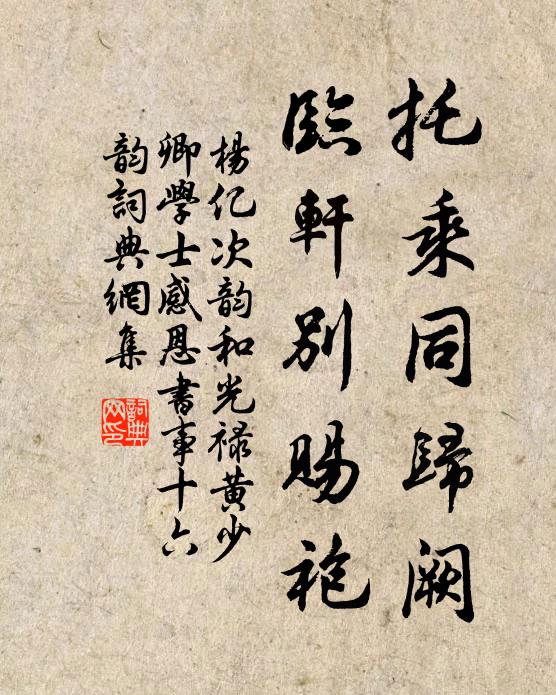 托乘同歸闕
臨軒別賜袍
楊億次韵和光祿黃少
卿學士感恩書事十六
韵詞典網集
詞典
网印